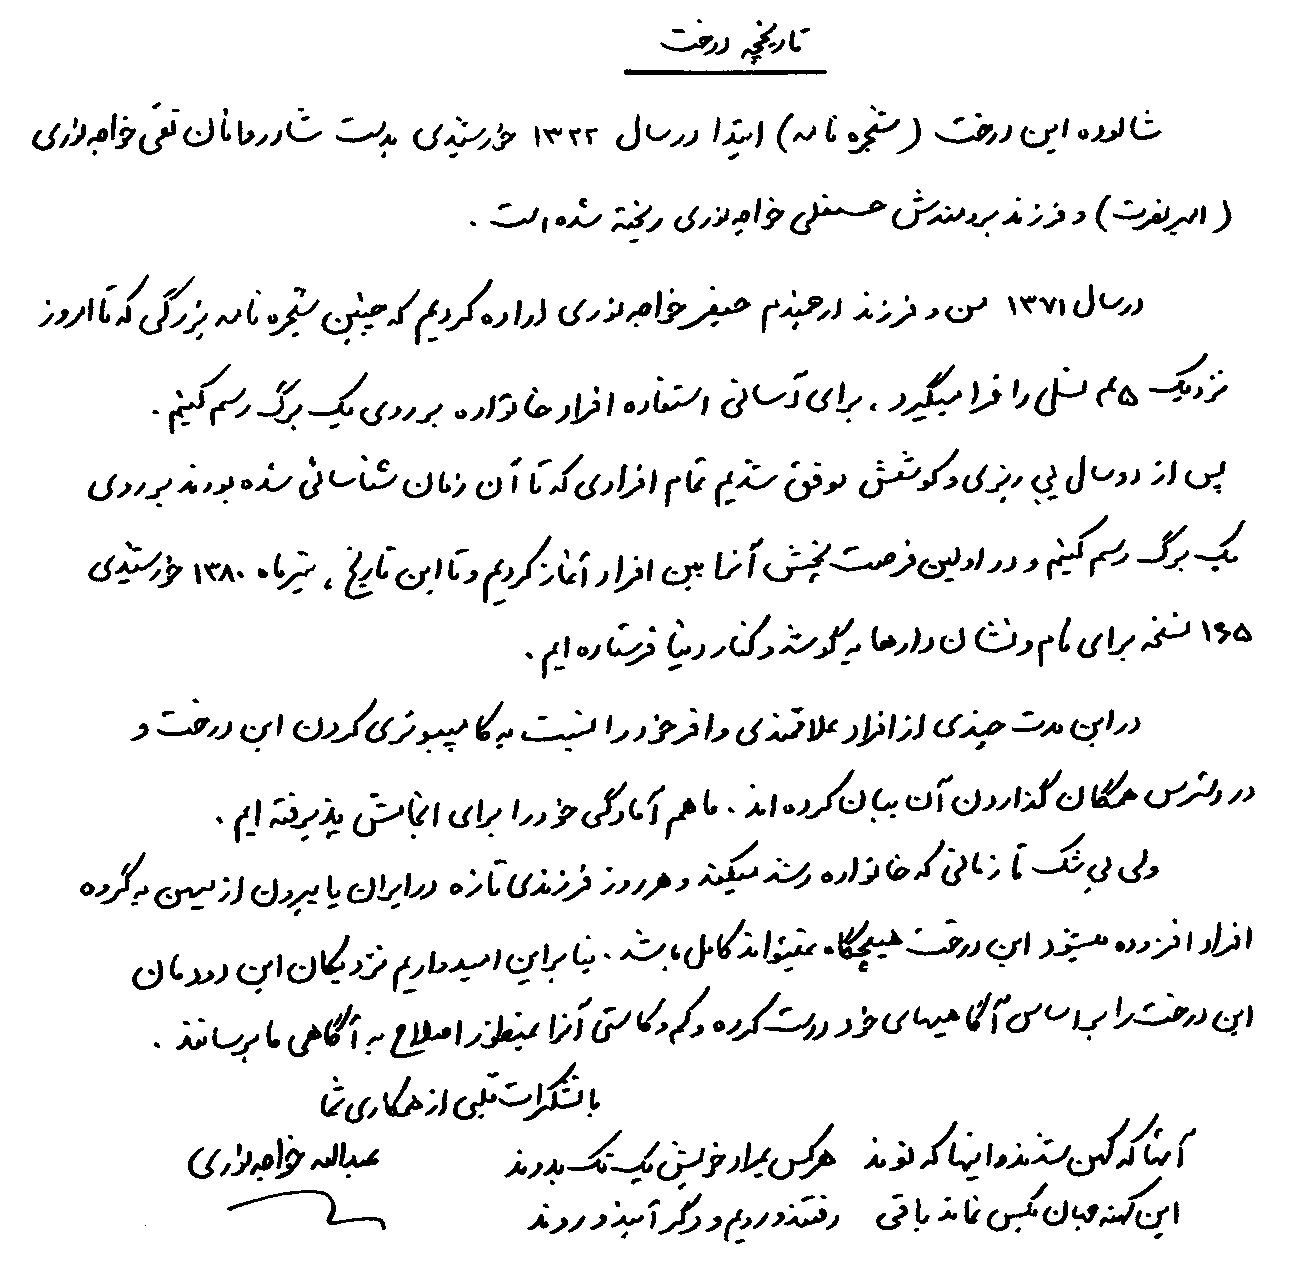 تاریخچه درخت
شالوده این درخت (شجره نامه) ابتدا در سال ۱۳۲۲ خورشیدی بدست شادروانان تقی خواجه نوری
(امیر نصرت) و فرزند برومندش حسنعلی خواجه نوری ریخته شده است.
در سال ۱۳۷۱ من و فرزند ارجمندم خواجه نوری اراده کردیم که چنین شجره نامه بزرگی که تا امروز
نزدیک نسلی را فرا میگیرد، برای آسانی استفاده افراد خانواده بر روی یک برگ رسم کنیم.
پس از دو سال پی ریزی و کوشش موفق شدیم تمام افرادی که تا آن زمان شناسائی شده بودند بر روی
یک برگ رسم کنیم و در اولین فرصت پخش آنرا بین افراد آغاز کردیم و تا این تاریخ، تیرماه ۱۳۸۰ خورشیدی
۱۶۵ نسخه برای نام و نشان دارها به گوشه و کنار دنیا فرستاده ایم.
در این مدت چندی از افراد علاقمندی وافر خود را نسبت به کامپیوتری کردن این درخت و
در دسترس همگان گذاردن آن بیان کرده اند. ما هم آمادگی خود را برای انجامش پذیرفته ایم.
ولی بی شک تا زمانی که خانواده رشد میکند و هر روز فرزندی تازه در ایران یا بیرون از میهن به گروه
افراد افزوده میشود این درخت هیچگاه نمیتواند کامل باشد. بنابراین امیدواریم نزدیکان این دودمان
این درخت را بر اساس آگاهیهای خود درست کرده و کم و کاستی آنرا بمنظور اصلاح به آگاهی ما برسانند.
با تشکرات قلبی از همکاری شما
آنها که کهن شدند و اینها که نوند هر کس بمراد خویش یک تک بدوند
عبدالله خواجه نوری
این کهنه جهان بکس نماند باقی رفتند و رویم و دگر آیند و روند